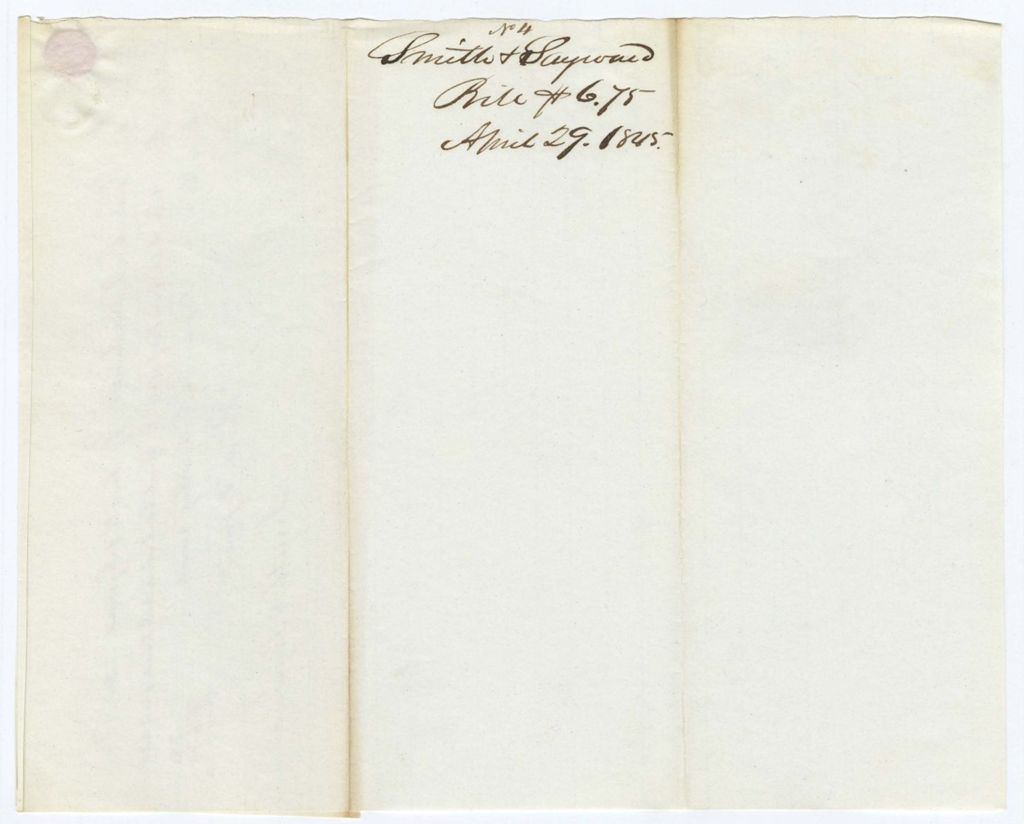 No 4
Smith & Sayward
Bill $6.75
April 29. 1845.